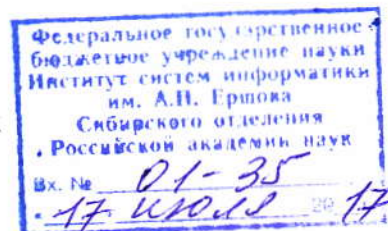 Федеральное государственное
бюджетное учреждение науки
Институт систем информатики
им. А.П. Ершова
Сибирского отделения
Российской академии наук
Вх. № 01-35
17 июля 2017